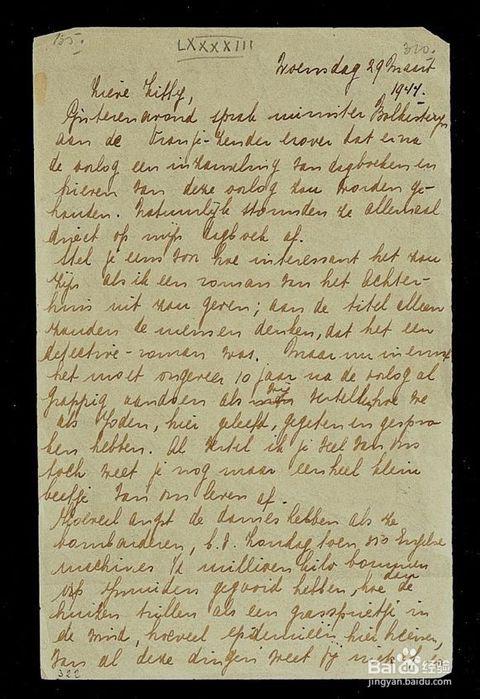 155.
LXXXXIII
320.
Woensdag 29 Maart
1944.
Lieve Kitty,
Gisterenavond sprak minister Bolkesteyn
aan de Oranje-zender erover dat er na
de oorlog een inzameling van dagboeken en
brieven van deze oorlog zou worden ge-
houden. Natuurlijk stormden ze allemaal
direct op mijn dagboek af.
Stel je eens voor hoe interessant het zou
zijn als ik een roman van het Achter-
huis uit zou geven; aan de titel alleen
zouden de mensen denken, dat het een
detective-roman was. Maar nu in ernst
het moet ongeveer 10 jaar na de oorlog al
grappig aandoen als wij vertellen hoe we
als Joden, hier geleefd, gegeten en gespro-
ken hebben. Al vertel ik je veel van ons
toch weet je nog maar een heel klein
beetje van ons leven af.
Hoeveel angst de dames hebben als ze
bombarderen, b.v. Zondag toen 350 Engelse
machines ½ millioen kilo bommen
op Ijmuiden gegooid hebben, hoe dan de
huizen trillen als een grassprietje in
de wind, hoeveel epidemieën hier heersen,
van al deze dingen weet jij niets
322
Baidu 经验
jingyan.baidu.com